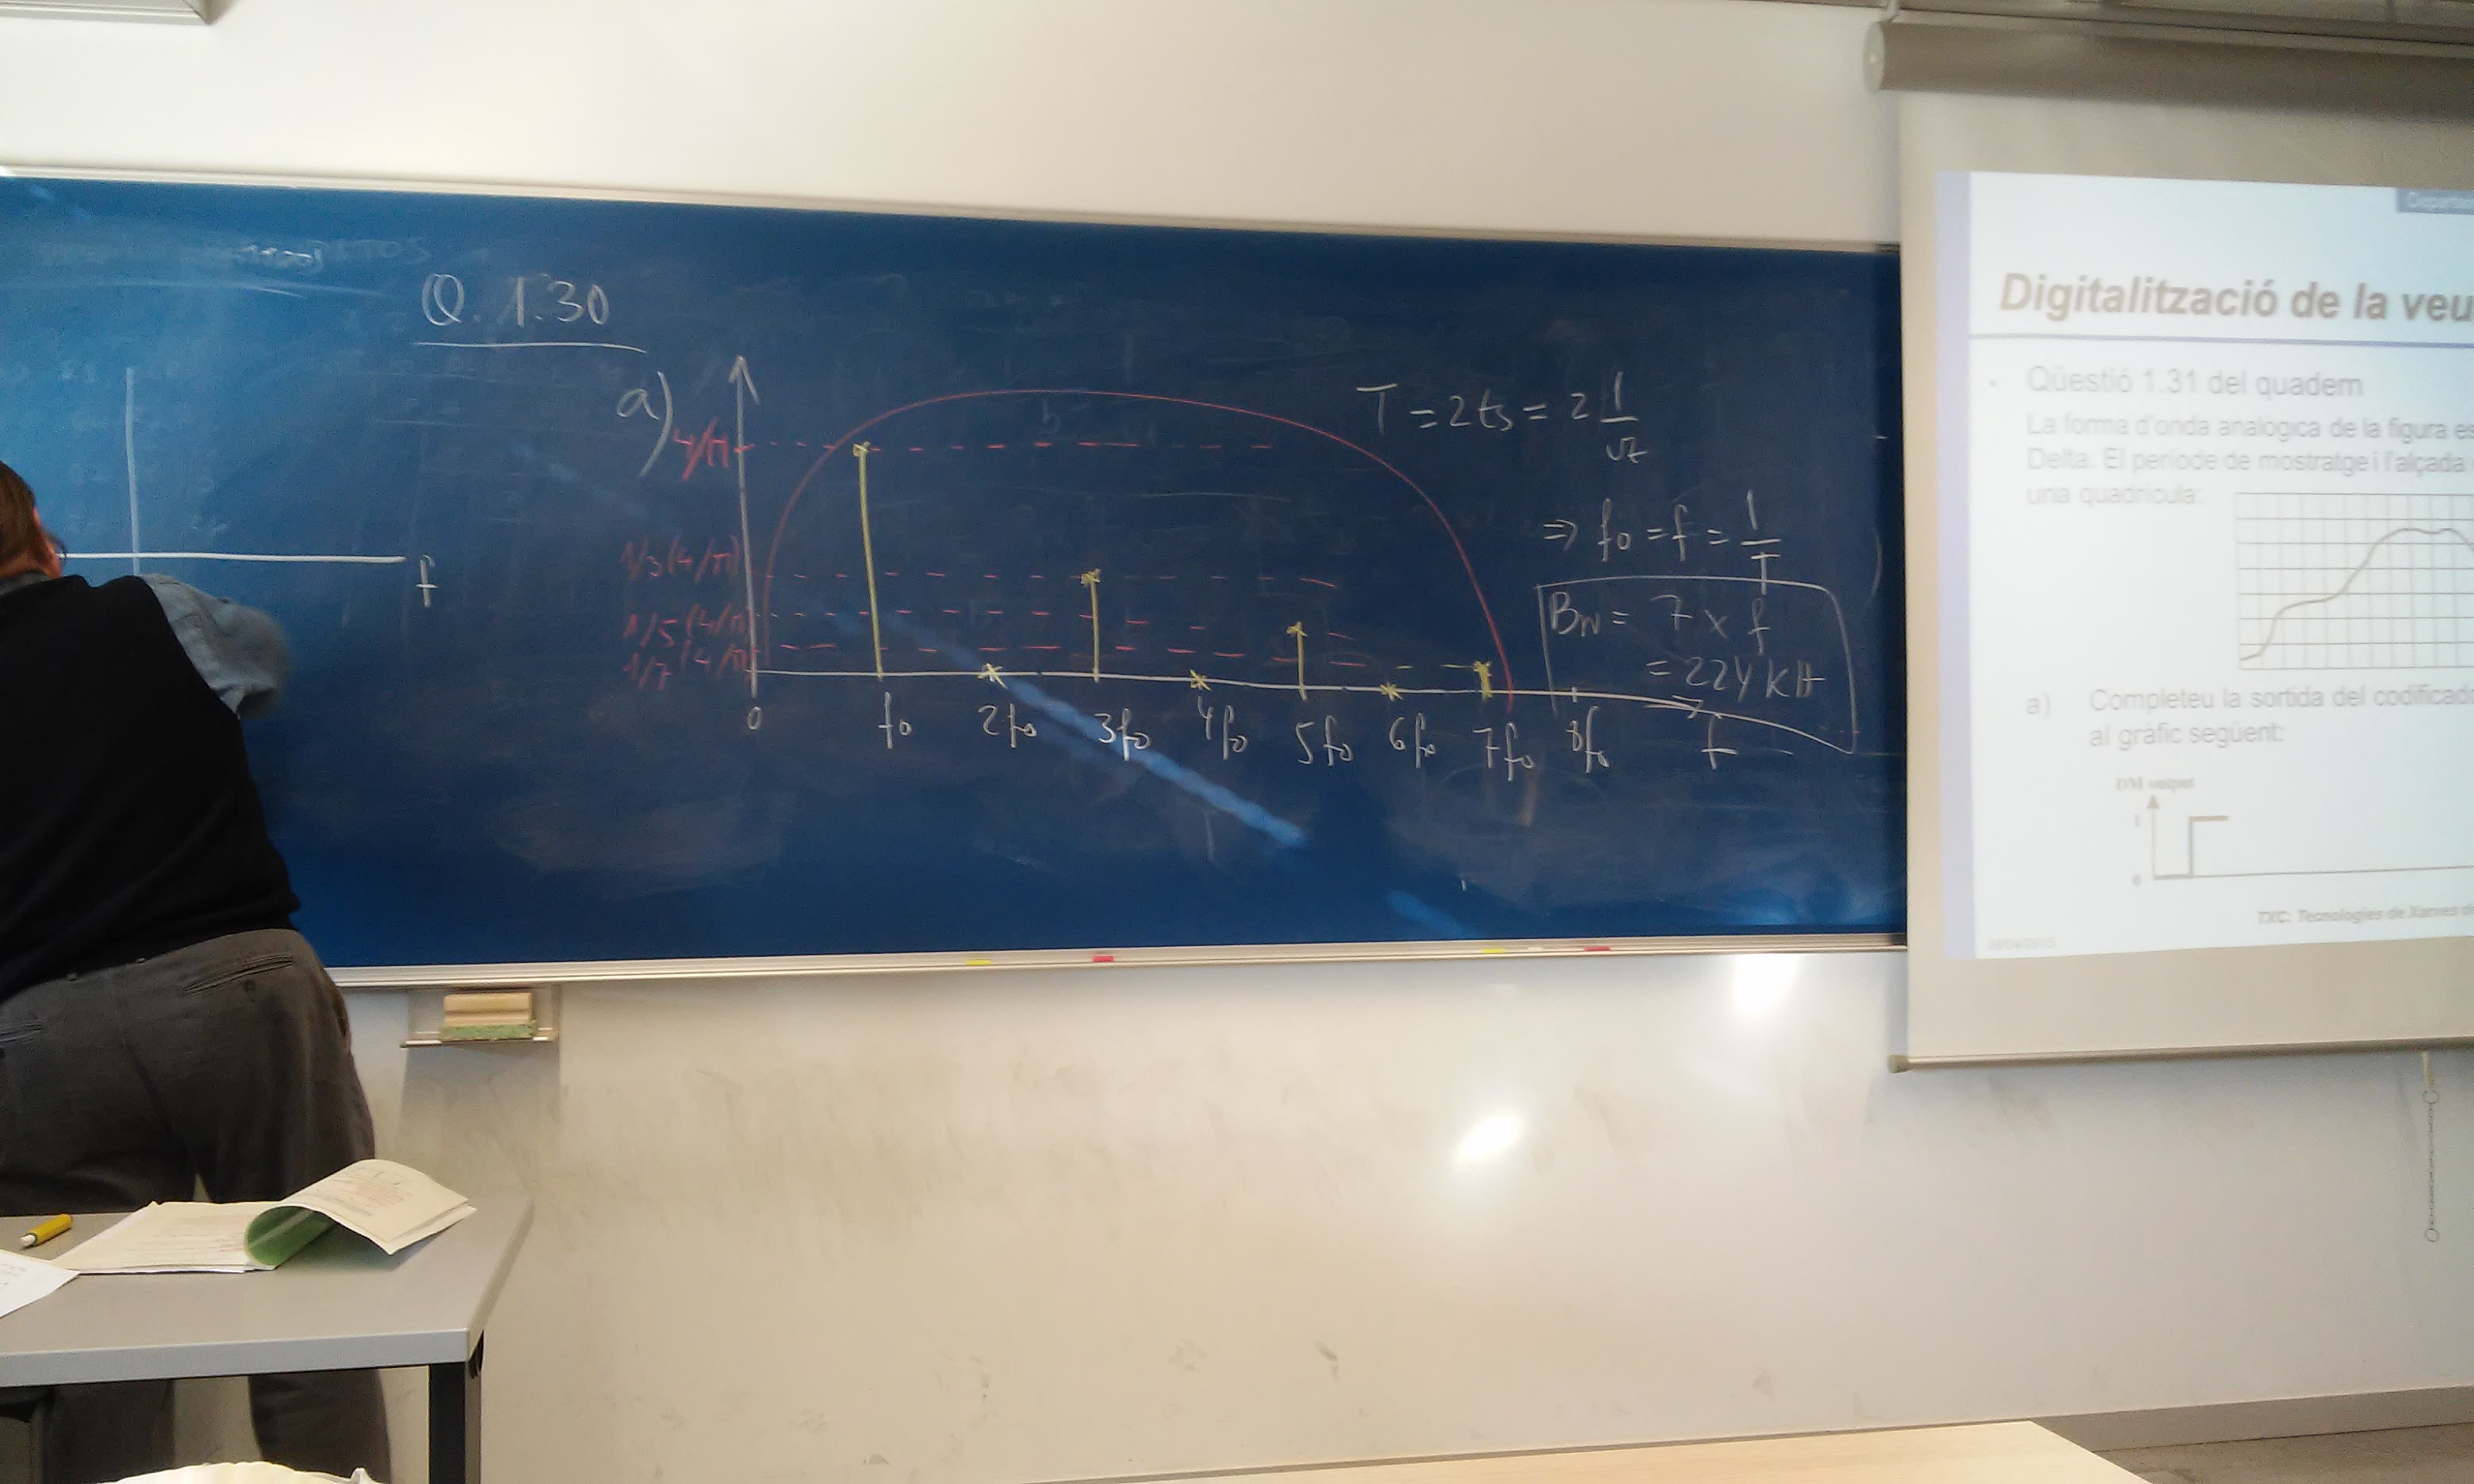 Q. 1.30
a)
4/π
1/3(4/π)
1/5(4/π)
1/7(4/π)
0 f0 2f0 3f0 4f0 5f0 6f0 7f0 8f0 f
f
T = 2ts = 2 1/vt
⇒ f0 = f = 1/T
BW = 7 x f
= 224 KH
Digitalització de la veu
Qüestió 1.31 del quadern
La forma d'onda analògica de la figura es
Delta. El període de mostratge i l'alçada
una quadrícula:
a) Completeu la sortida del codificado
al gràfic següent:
DM output
1
0
TXC: Tecnologies de Xarxes de